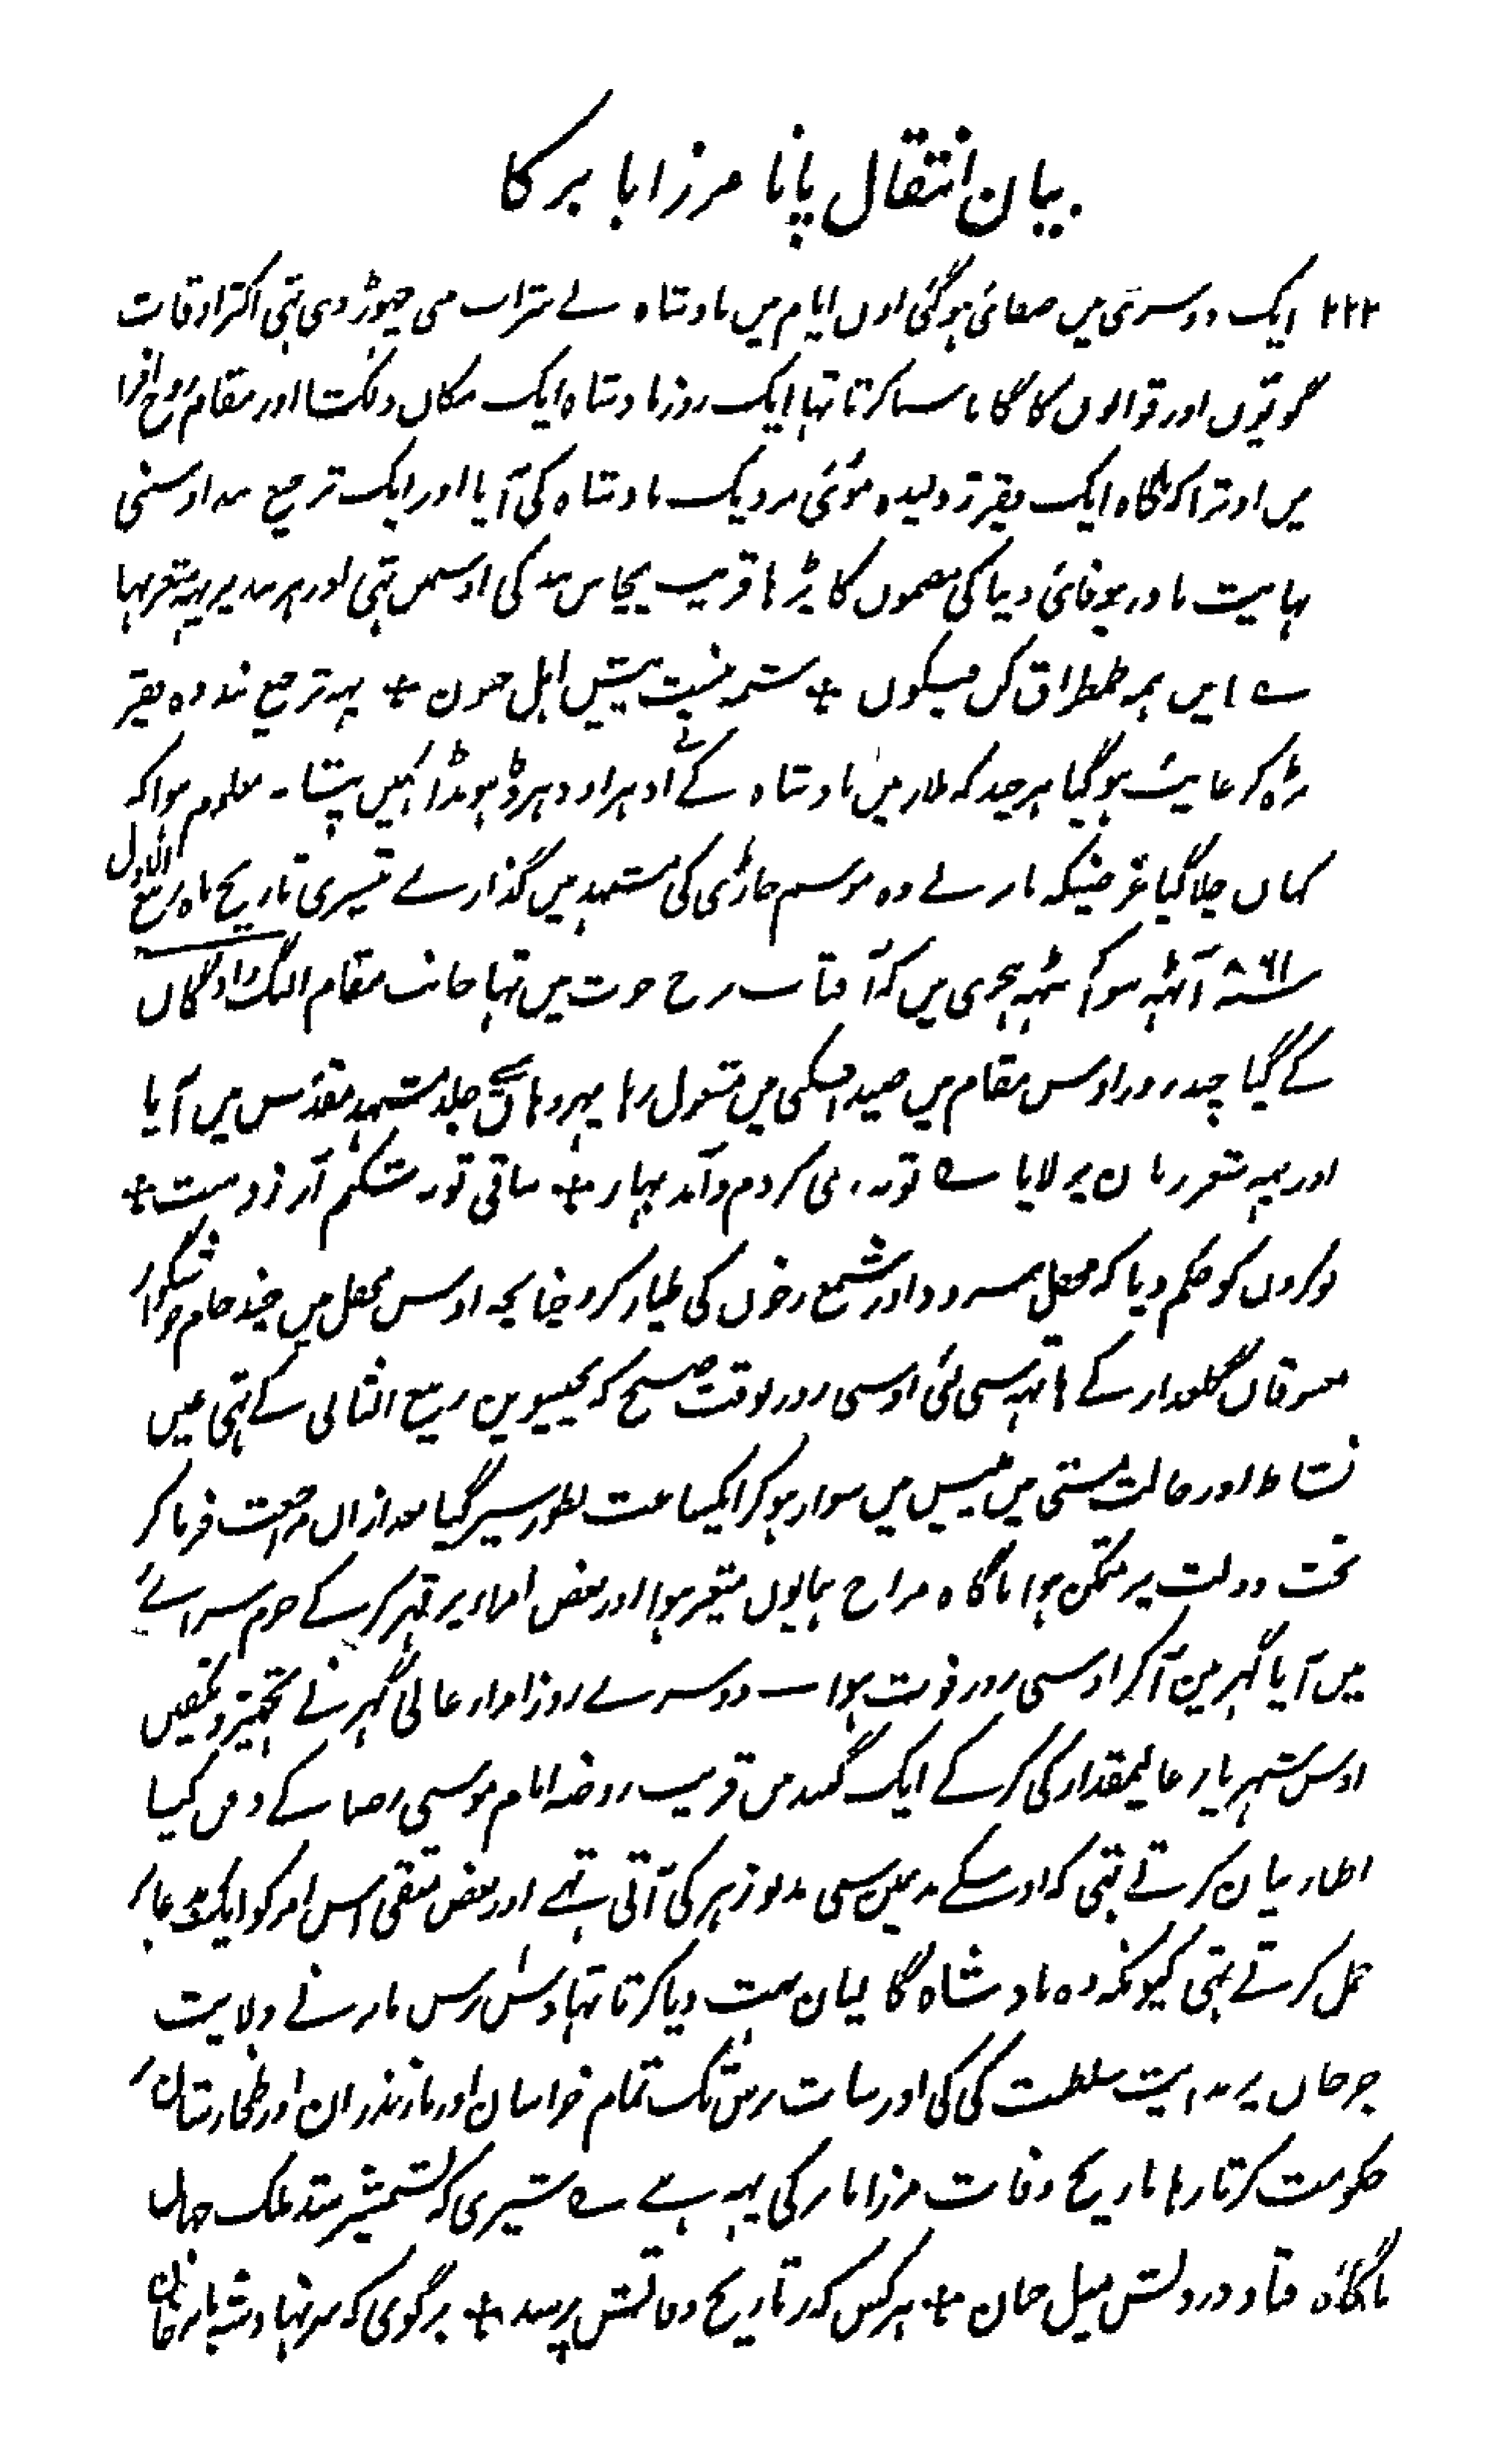 بیان انتقال پانا مرزا بابر کا
۲۲۲ ایک دوسری میں صفائی ہوگئی اون ایام میں بادشاہ نے شراب می چھوڑ دی تہی اکثر اوقات
گویّوں اور قوالوں کا گانا سنا کرتا تہا ایک روز بادشاہ ایک مکان دلکشا اور مقام روح افزا
میں اوترا کہ ناگاہ ایک فقیر ژولیدہ موئی نزدیک بادشاہ کی آیا اور ایک ترجیع بند اوسنی
نہایت نادر بیوفائی دنیا کی مضموں کا پڑہا قریب پچاس بند کی اوسمیں تہی اور ہر بند پر یہہ شعر تہا
ے ایں ہمہ طمطراق کن فیکوں + شمہ نیست پیش اہل جنون + یہہ ترجیع بند وہ فقیر
پڑہ کر غایب ہوگیا ہر چند کہ ملازمیں بادشاہ کے نے اوہر اودہر ڈہونڈا کہیں پتا نہ معلوم ہوا کہ
کہاں چلا گیا غرضیکہ بابر نے وہ موسم جاڑی کی مشہد میں گذارے تیسری تاریخ ماہ ربیع الاول
سنہ ۸۶۱ آٹہہ سو اکسٹہہ ہجری میں کہ آفتاب برج حوت میں تہا جانب مقام النگ رادکاں
کے گیا چند روز اوس مقام میں صید افکنی میں مشغول رہا پہر وہاں سے جلد مشہد مقدس میں آیا
اور یہہ شعر زبان پر لایا ے توبہ می کردم و آمد بہار + ساقی توبہ شکنم آرزوست +
نوکروں کو حکم دیا کہ محفل سرود اور شمع رخوں کی طیار کرو چنانچہ اوس محفل میں چند جام خوشگوار
معشوقاں گلعذار کے ہاتہہ سی پئی اوسی روز بوقت صبح کہ پچیسویں ربیع الثانی کے تہی عین
نشاط اور حالت مستی میں میں سوار ہوکر ایکساعت بطور سیر گیا بعد ازاں مراجعت فرما کر
تخت دولت پر متمکن ہوا ناگاہ مزاج ہمایوں متغیر ہوا اور بعض امراء پر قہر کر کے حرم سرائے
میں آیا گہر میں آکر اوسی روز فوت ہوا ۔ دوسرے روز امراء عالی گہر نے تجہیز و تکفین
اوس شہریار عالیمقدار کی کر کے ایک گنبد میں قریب روضہ امام موسی رضا کے دفن کیا
اطباء بیان کرتے تہی کہ اوسکے بدن میں سی بدبو زہر کی آتی ہے اور بعض متقی اس امر کو ایک
حمل کرتے تہی کیونکہ وہ بادشاہ گالیان بہت دیا کرتا تہا دس برس بابر نے ولایت
جرجاں پر سلطنت کی کی اور سات برس تک تمام خراسان اور مازندران اور طخارستان
حکومت کرتا رہا تاریخ وفات مرزا بابر کی یہہ ہے ے شیری کہ بشمشیر ستد ملک جہاں
ناگاہ فتاد در دلش میل جنان + ہر کس کہ ز تاریخ وفاتش پرسد + برگوی کہ سر نہاد شہ بابر خان